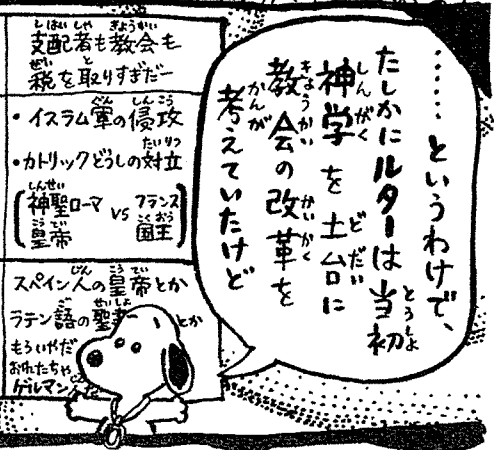 ……というわけで、
たしかにルターは当初
神学を土台に
教会の改革を
考えていたけど
支配者も教会も
税を取りすぎだー
・イスラム軍の侵攻
・カトリックどうしの対立
神聖ローマ皇帝 VS フランス国王
スペイン人の皇帝とか
ラテン語の聖書とか
もういやだ
おれたちゃ
ゲルマン人だ